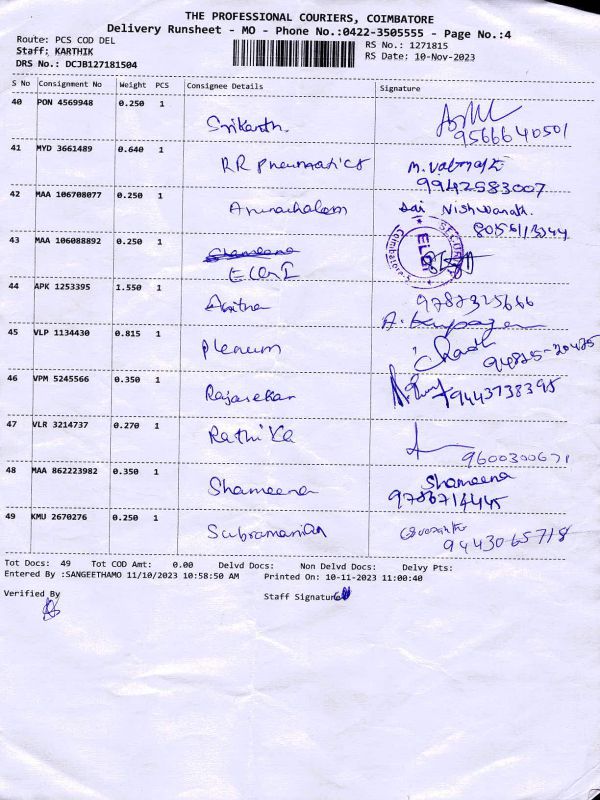 THE PROFESSIONAL COURIERS, COIMBATORE
Delivery Runsheet - MO - Phone No.:0422-3505555 - Page No.:4
Route: PCS COD DEL
Staff: KARTHIK
DRS No.: DCJB127181504
RS No.: 1271815
RS Date: 10-Nov-2023
S No Consignment No Weight PCS Consignee Details Signature
40 PON 4569948 0.250 1 Srikanth. 9566640501
41 MYD 3661489 0.640 1 RR Pneumatics 9942583007
42 MAA 106708077 0.250 1 Arunachalam Sai Vishwanath.
43 MAA 106088892 0.250 1 ELGI
SECURITY ELGI Coimbatore
44 APK 1253395 1.550 1
45 VLP 1134430 0.815 1 Plenum
46 VPM 5245566 0.350 1 Rajasekar 9443738395
47 VLR 3214737 0.270 1 Rathika 9600300671
48 MAA 862223982 0.350 1 Shameena Shameena
9786714445
49 KMU 2670276 0.250 1 Subramanian
9443065718
Tot Docs: 49 Tot COD Amt: 0.00 Delvd Docs: Non Delvd Docs: Delvy Pts:
Entered By :SANGEETHAMO 11/10/2023 10:58:50 AM Printed On: 10-11-2023 11:00:40
Verified By Staff Signature